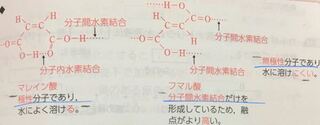 分子間水素結合
分子内水素結合
マレイン酸
極性分子であり、
水によく溶ける。
分子間水素結合
分子間水素結合
フマル酸
分子間水素結合だけを
形成しているため、融
点がより高い。
無極性分子であり、
水に溶けにくい。